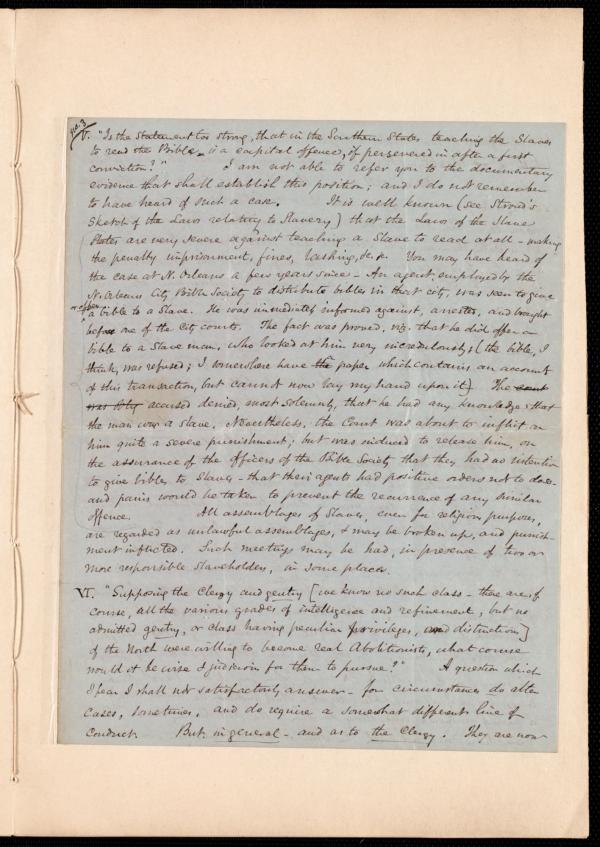 No. 3
V. "Is the statement too strong, that in the Southern States teaching the Slaves
to read the Bible, is a capital offence, if persevered in after a first
conviction?" I am not able to refer you to the documentary
evidence that shall establish this position; and I do not remember
to have heard of such a case. It is well known (see Stroud's
Sketch of the Laws relating to Slavery) that the Laws of the Slave
States are very severe against teaching a Slave to read at all - making
the penalty imprisonment, fines, lashing, &c. &c. You may have heard of
the case at N. Orleans a few years since - An agent employed by the
N. Orleans City Bible Society to distribute bibles in that city, was seen to give
a bible to a Slave. He was immediately informed against, arrested, and brought
before one of the city courts. The fact was proved, viz. that he did offer a
bible to a Slave man, who looked at him very incredulously; (the bible, I
think, was refused; I somewhere have the paper which contains an account
of this transaction, but cannot now lay my hand upon it). The court
was accused denied, most solemnly, that he had any knowledge that
the man was a slave. Nevertheless, the Court was about to inflict on
him quite a severe punishment; but was induced to release him, on
the assurance of the officers of the Bible Society that they had no intention
to give bibles to Slaves - that their agents had positive orders not to do so -
and pains would be taken to prevent the recurrence of any similar
offence. All assemblages of Slaves, even for religious purposes,
are regarded as unlawful assemblages, & may be broken up, and punish-
ment inflicted. Such meetings may be had, in presence of two or
more responsible slaveholders, in some places.
VI. "Supposing the Clergy and gentry [we know no such class - there are, of
course, all the various grades of intelligence and refinement, but no
admitted gentry, or class having peculiar privileges, and distinction]
of the North were willing to become real Abolitionists, what course
would it be wise & judicious for them to pursue?" A question which
I fear I shall not satisfactorily answer - for circumstances do alter
cases, sometimes, and do require a somewhat different line of
conduct. But in general - and as to the Clergy. They are now